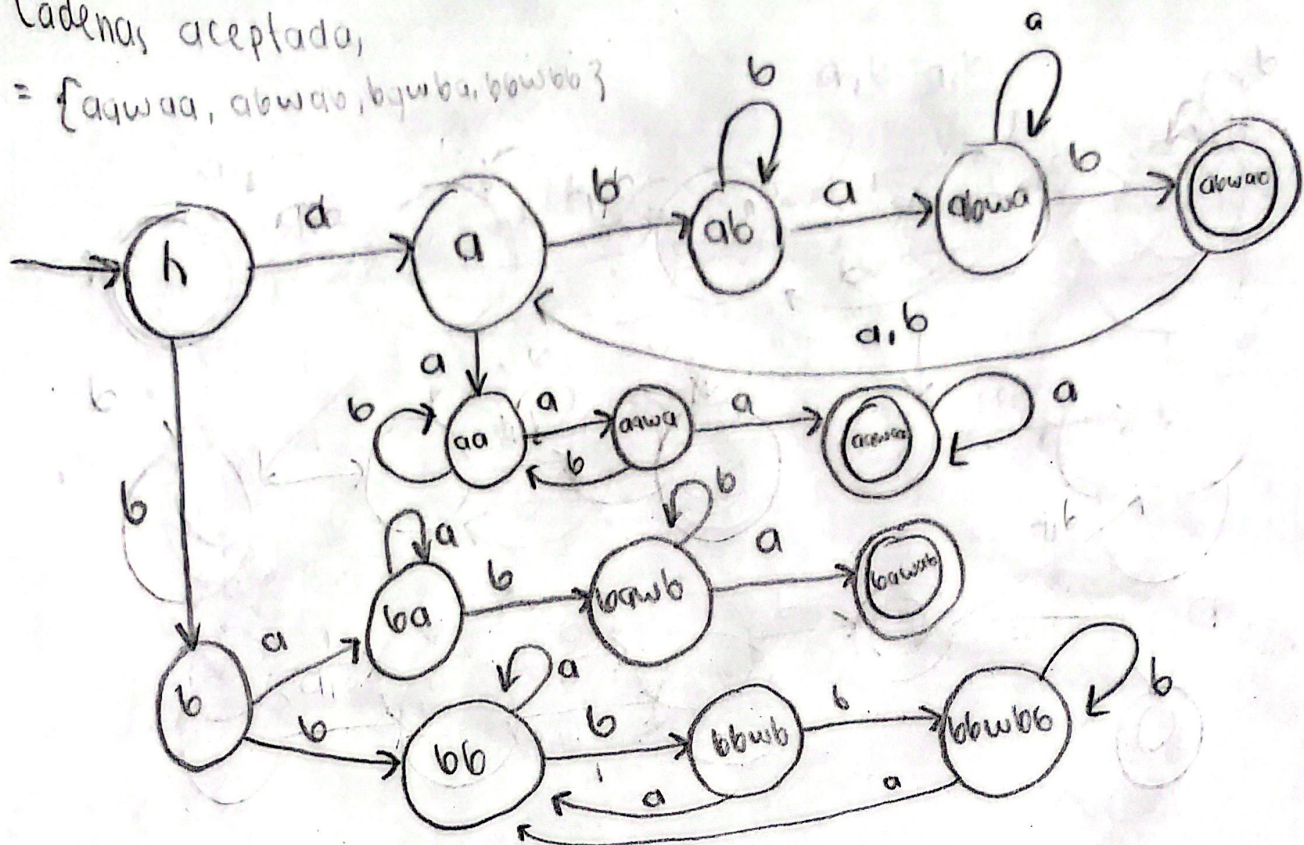 Cadenas aceptada,
= {aawaa, abwab, bawba, bbwbb}
a
b
a
b
a
b
h
a
ab
abwa
abwab
a, b
a
b
a
a
a
aa
aawa
aawaa
b
b
b
a
b
a
ba
bawb
a
a
b
b
b
b
b
bb
bbwb
bbwbb
a
a